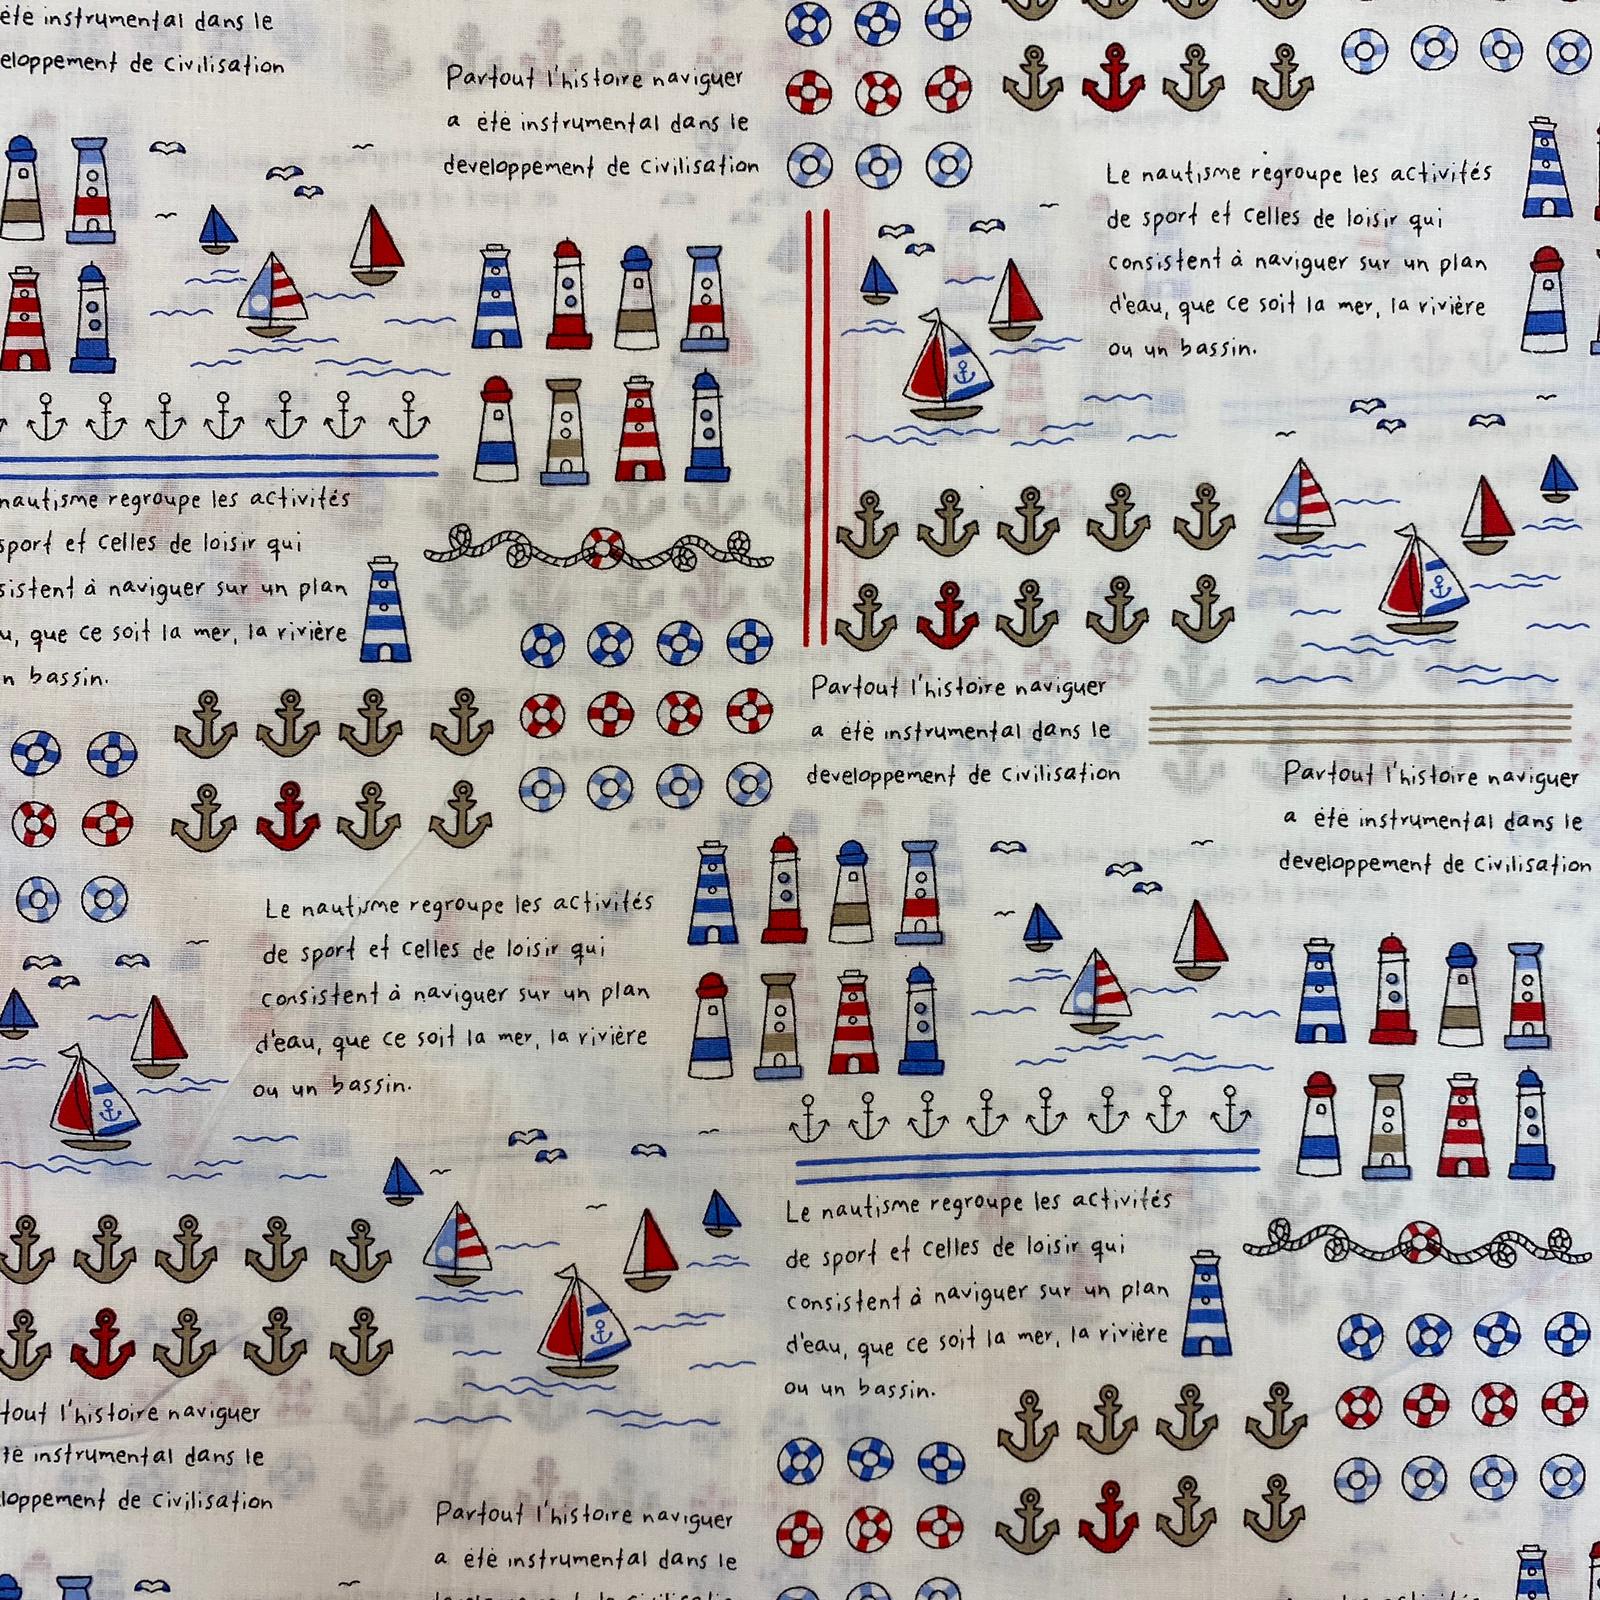 été instrumental dans le
eloppement de civilisation
Partout l'histoire naviguer
a été instrumental dans le
developpement de civilisation
Le nautisme regroupe les activités
de sport et celles de loisir qui
consistent à naviguer sur un plan
d'eau, que ce soit la mer, la rivière
ou un bassin.
nautisme regroupe les activités
sport et celles de loisir qui
sistent à naviguer sur un plan
u, que ce soit la mer, la rivière
n bassin.
Partout l'histoire naviguer
a été instrumental dans le
developpement de civilisation
Partout l'histoire naviguer
a été instrumental dans le
developpement de civilisation
Le nautisme regroupe les activités
de sport et celles de loisir qui
consistent à naviguer sur un plan
d'eau, que ce soit la mer, la rivière
ou un bassin.
Le nautisme regroupe les activités
de sport et celles de loisir qui
consistent à naviguer sur un plan
d'eau, que ce soit la mer, la rivière
ou un bassin.
tout l'histoire naviguer
té instrumental dans le
loppement de civilisation
Partout l'histoire naviguer
a été instrumental dans le